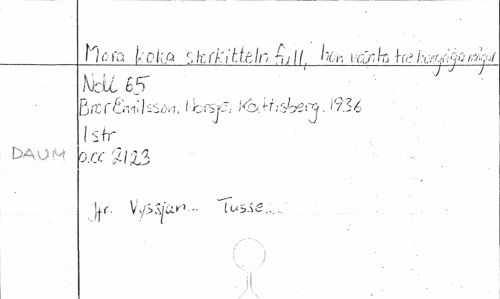 Mora koka storkitteln full, hon vänta tre hungriga
NdU 65
Bror Emilsson, Norsjö, Kattisberg. 1936
1 str
DAUM acc 2123
jfr. Vyssjan... Tusse....